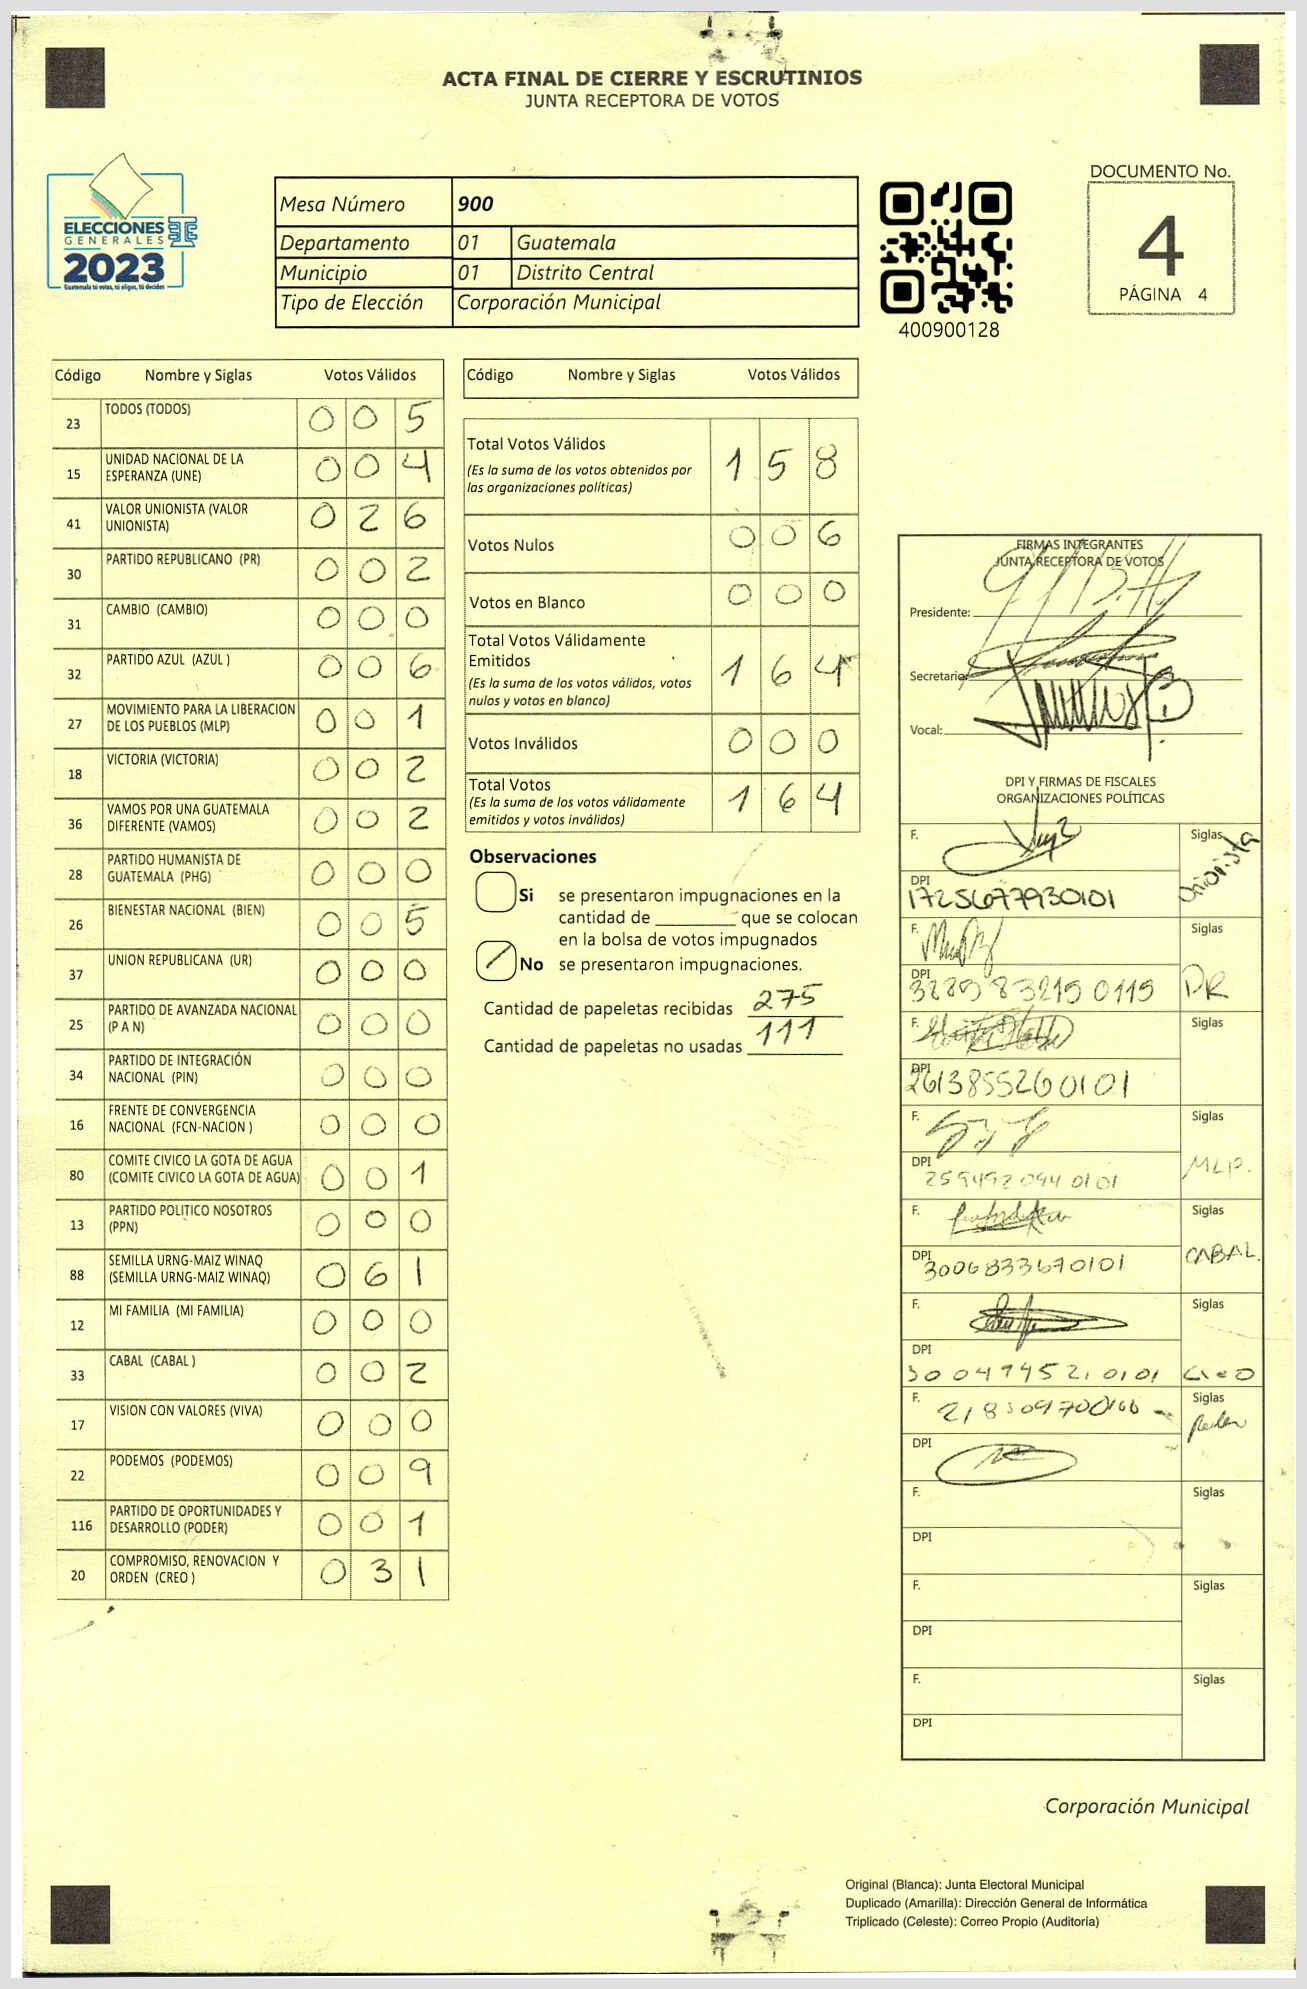 ACTA FINAL DE CIERRE Y ESCRUTINIOS
JUNTA RECEPTORA DE VOTOS
ELECCIONES
GENERALES
2023
Guatemala tú votas, tú eliges, tú decides
Mesa Número 900
Departamento 01 Guatemala
Municipio 01 Distrito Central
Tipo de Elección Corporación Municipal
400900128
DOCUMENTO No.
4
PÁGINA 4
Código Nombre y Siglas Votos Válidos
23 TODOS (TODOS) 0 0 5
15 UNIDAD NACIONAL DE LA
ESPERANZA (UNE) 0 0 4
41 VALOR UNIONISTA (VALOR
UNIONISTA) 0 2 6
30 PARTIDO REPUBLICANO (PR) 0 0 2
31 CAMBIO (CAMBIO) 0 0 0
32 PARTIDO AZUL (AZUL ) 0 0 6
27 MOVIMIENTO PARA LA LIBERACION
DE LOS PUEBLOS (MLP) 0 0 1
18 VICTORIA (VICTORIA) 0 0 2
36 VAMOS POR UNA GUATEMALA
DIFERENTE (VAMOS) 0 0 2
28 PARTIDO HUMANISTA DE
GUATEMALA (PHG) 0 0 0
26 BIENESTAR NACIONAL (BIEN) 0 0 5
37 UNION REPUBLICANA (UR) 0 0 0
25 PARTIDO DE AVANZADA NACIONAL
(P A N) 0 0 0
34 PARTIDO DE INTEGRACIÓN
NACIONAL (PIN) 0 0 0
16 FRENTE DE CONVERGENCIA
NACIONAL (FCN-NACION ) 0 0 0
80 COMITE CIVICO LA GOTA DE AGUA
(COMITE CIVICO LA GOTA DE AGUA) 0 0 1
13 PARTIDO POLITICO NOSOTROS
(PPN) 0 0 0
88 SEMILLA URNG-MAIZ WINAQ
(SEMILLA URNG-MAIZ WINAQ) 0 6 1
12 MI FAMILIA (MI FAMILIA) 0 0 0
33 CABAL (CABAL ) 0 0 2
17 VISION CON VALORES (VIVA) 0 0 0
22 PODEMOS (PODEMOS) 0 0 9
116 PARTIDO DE OPORTUNIDADES Y
DESARROLLO (PODER) 0 0 1
20 COMPROMISO, RENOVACION Y
ORDEN (CREO ) 0 3 1
Código Nombre y Siglas Votos Válidos
Total Votos Válidos 1 5 8
(Es la suma de los votos obtenidos por
las organizaciones políticas)
Votos Nulos 0 0 6
Votos en Blanco 0 0 0
Total Votos Válidamente
Emitidos 1 6 4
(Es la suma de los votos válidos, votos
nulos y votos en blanco)
Votos Inválidos 0 0 0
Total Votos 1 6 4
(Es la suma de los votos válidamente
emitidos y votos inválidos)
Observaciones
Si se presentaron impugnaciones en la
cantidad de ________ que se colocan
en la bolsa de votos impugnados
No se presentaron impugnaciones.
Cantidad de papeletas recibidas 275
Cantidad de papeletas no usadas 111
FIRMAS INTEGRANTES
JUNTA RECEPTORA DE VOTOS
Presidente:
Secretario:
Vocal:
DPI Y FIRMAS DE FISCALES
ORGANIZACIONES POLÍTICAS
F. Siglas
Unionista
DPI
1725677930101
F. Siglas
DPI PR
3229832190119
F. Siglas
DPI
2613855260101
F. Siglas
DPI MLP.
2594920940101
F. Siglas
DPI CABAL.
3006833670101
F. Siglas
DPI
3004945210101 CREO
F. Siglas
DPI
F. Siglas
DPI
F. Siglas
DPI
F. Siglas
DPI
Corporación Municipal
Original (Blanca): Junta Electoral Municipal
Duplicado (Amarilla): Dirección General de Informática
Triplicado (Celeste): Correo Propio (Auditoría)